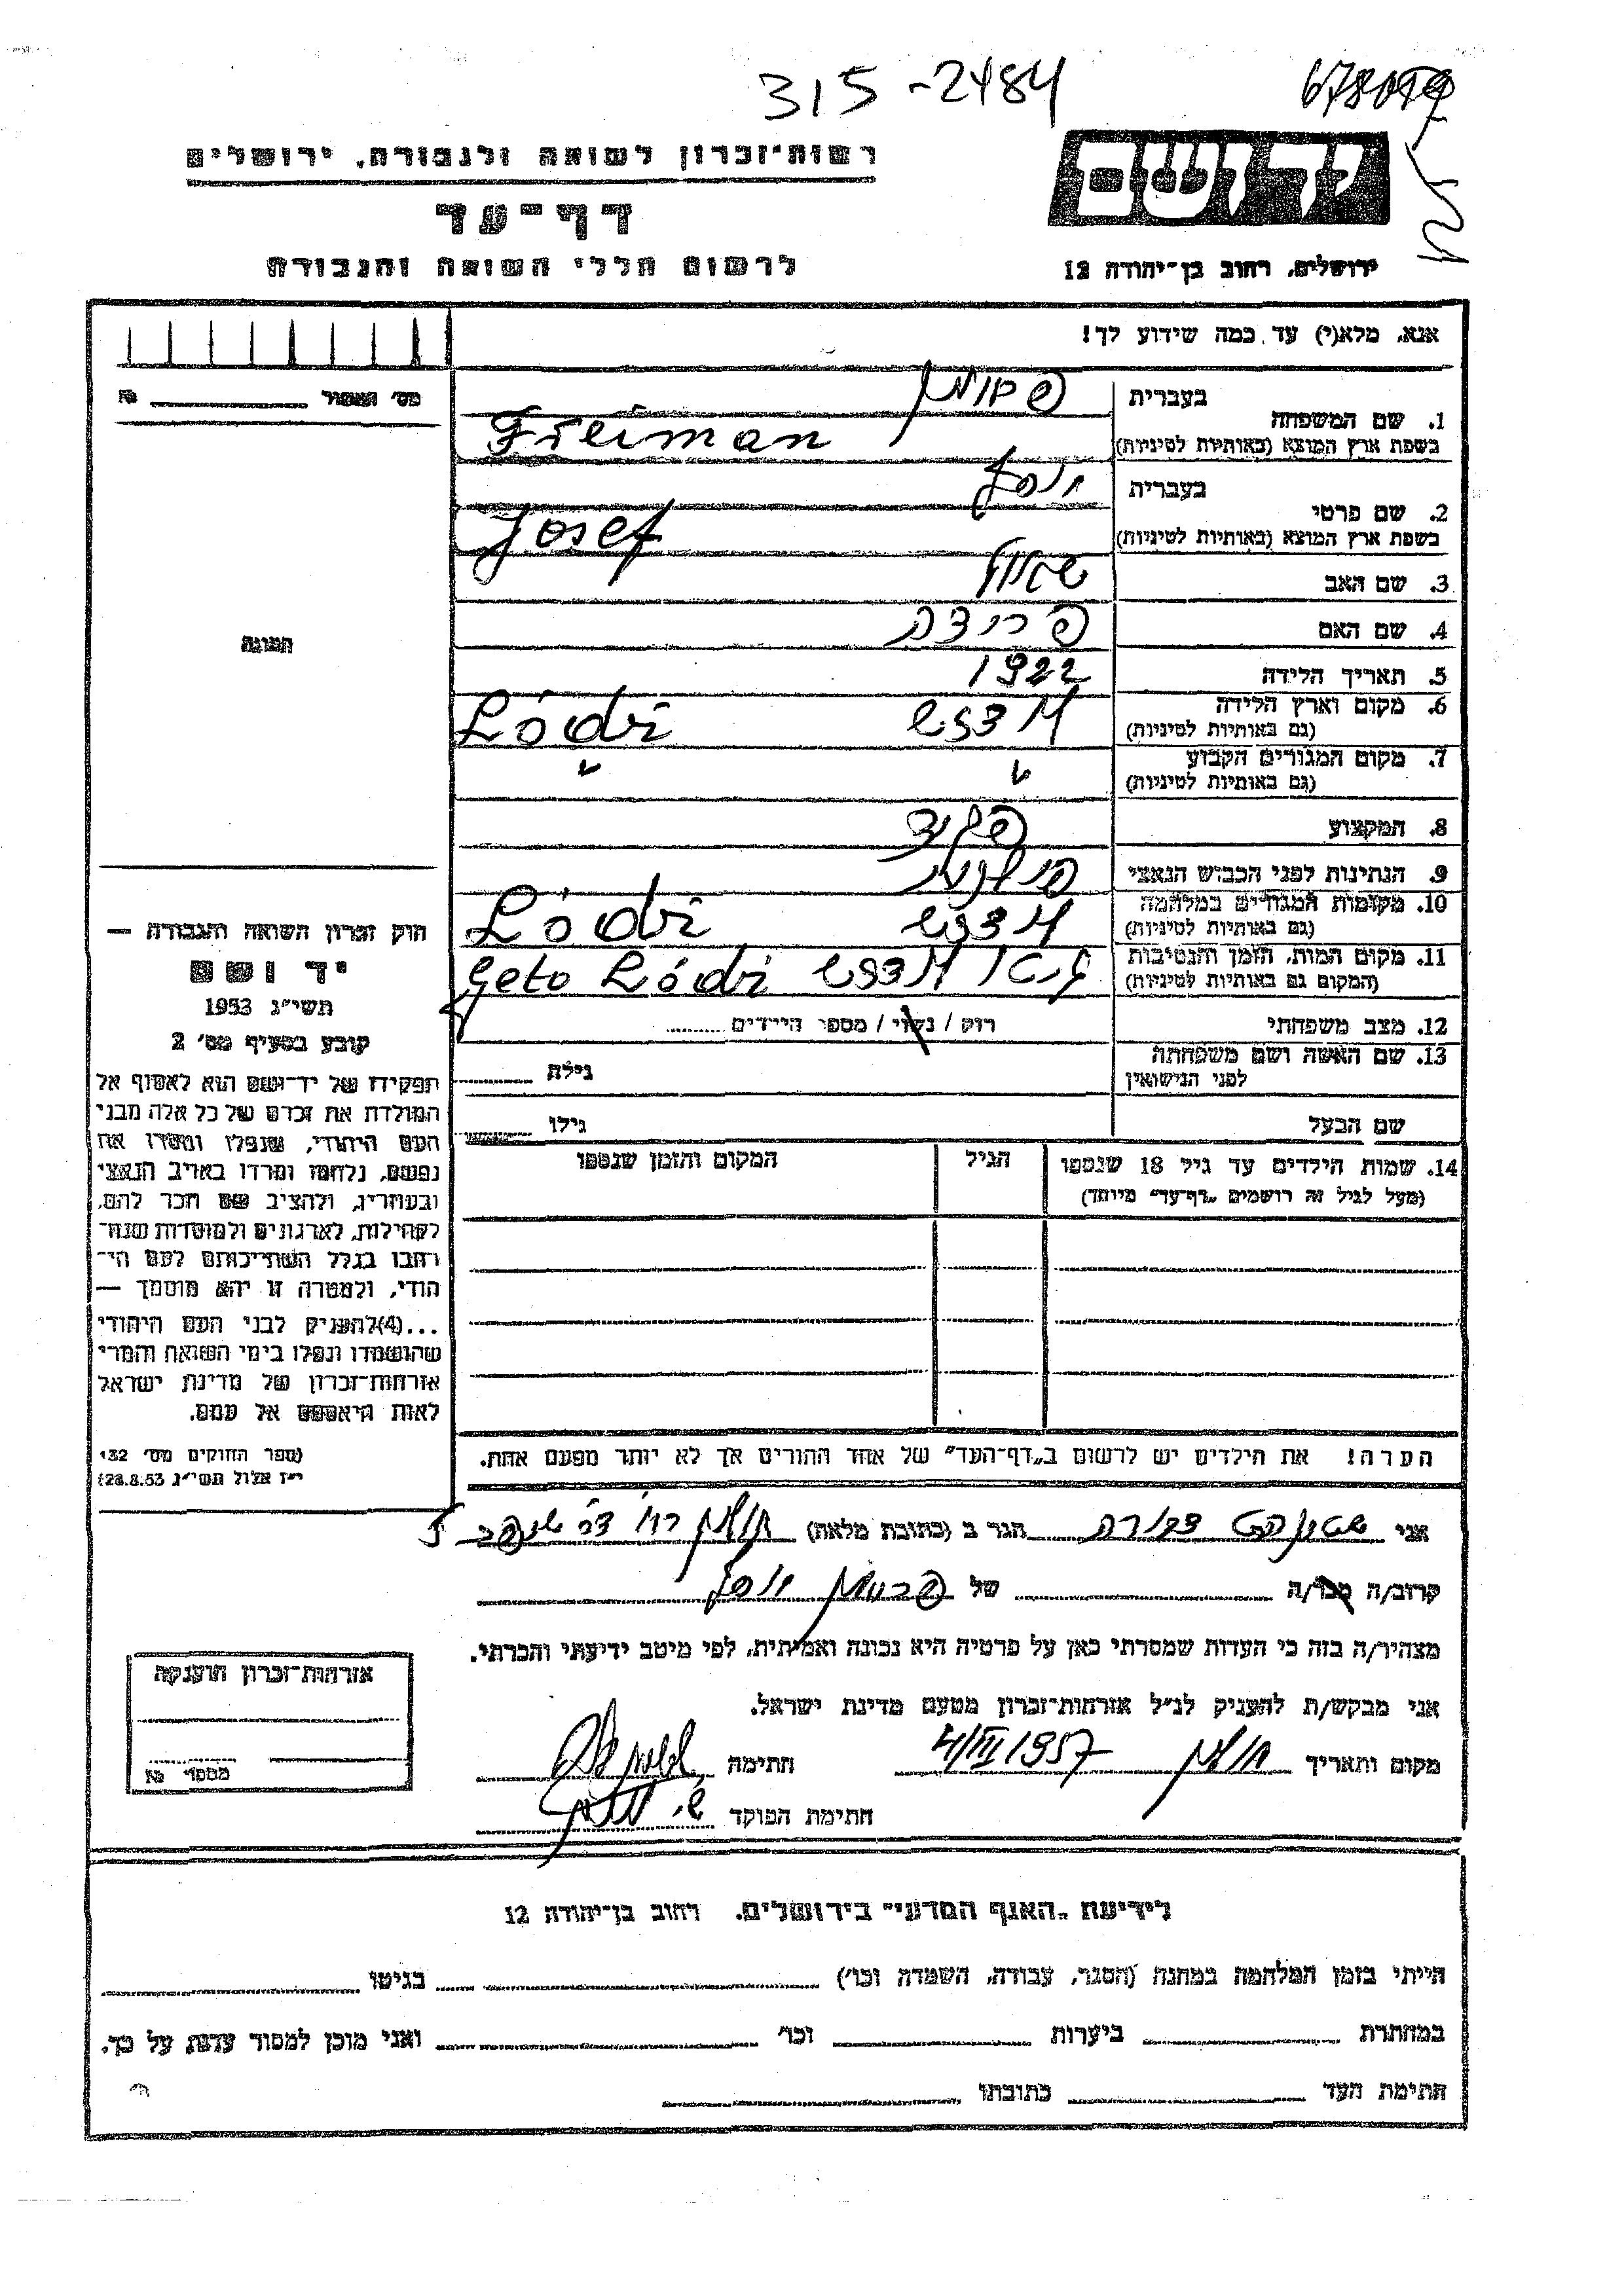 315-2484
רשות־זכרון לשואה ולגבורה, ירושלים
דף־עד
לרשום חללי השואה והגבורה
יד ושם
ירושלים, רחוב בן־יהודה 12
אנא, מלא(י) עד כמה שידוע לך!
מס׳ האשור №
1. שם המשפחה
בעברית
בשפת ארץ המוצא (באותיות לטיניות)
Freiman
2. שם פרטי
בעברית יוסף
בשפת ארץ המוצא (באותיות לטיניות)
Josef
3. שם האב
4. שם האם
5. תאריך הלידה 1922
6. מקום וארץ הלידה
(גם באותיות לטיניות)
Łódzi
7. מקום המגורים הקבוע
(גם באותיות לטיניות)
8. המקצוע פקיד
9. הנתינות לפני הכבוש הנאצי פולנית
10. מקומות המגורים במלחמה
(גם באותיות לטיניות)
Łódzi
11. מקום המות, הזמן והנסיבות
(המקום גם באותיות לטיניות)
Geto Łódzi
12. מצב משפחתי רוק / נשוי / מספר הילדים
13. שם האשה ושם משפחתה
לפני הנישואין
גילה
שם הבעל גילו
14. שמות הילדים עד גיל 18 שנספו
(מעל לגיל זה רושמים „דף־עד” מיוחד)
הגיל
המקום והזמן שנספו
הערה! את הילדים יש לרשום ב„דף־העד” של אחד ההורים אך לא יותר מפעם אחת.
התמונה
חוק זכרון השואה והגבורה —
יד ושם
תשי״ג 1953
קובע בסעיף מס׳ 2
תפקידו של יד־ושם הוא לאסוף אל
המולדת את זכרם של כל אלה מבני
העם היהודי, שנפלו ומסרו את
נפשם, נלחמו ומרדו באויב הנאצי
ובעוזריו, ולהציב שם וזכר להם,
לקהילות, לארגונים ולמוסדות שנח־
רבו בגלל השתייכותם לעם הי־
הודי, ולמטרה זו יהא מוסמך —
...(4)להעניק לבני העם היהודי
שהושמדו ונפלו בימי השואה והמרי
אזרחות־זכרון של מדינת ישראל
לאות היאספם אל עמם.
(ספר החוקים מס׳ 132
י״ז אלול תשי״ג 28.8.53)
אני הגר ב (כתובת מלאה) חולון
קרוב/ה מכר/ה של יוסף
מצהיר/ה בזה כי העדות שמסרתי כאן על פרטיה היא נכונה ואמיתית, לפי מיטב ידיעתי והכרתי.
אני מבקש/ת להעניק לנ״ל אזרחות־זכרון מטעם מדינת ישראל.
מקום ותאריך חולון 1957 חתימה
חתימת הפוקד
אזרחות־זכרון הוענקה
מספר №
לידיעת „האגף המדעי” בירושלים, רחוב בן־יהודה 12
הייתי בזמן המלחמה במחנה (הסגר, עבודה, השמדה וכו׳) בגיטו
במחתרת ביערות וכו׳ ואני מוכן למסור עדות על כך.
חתימת העד כתובתו